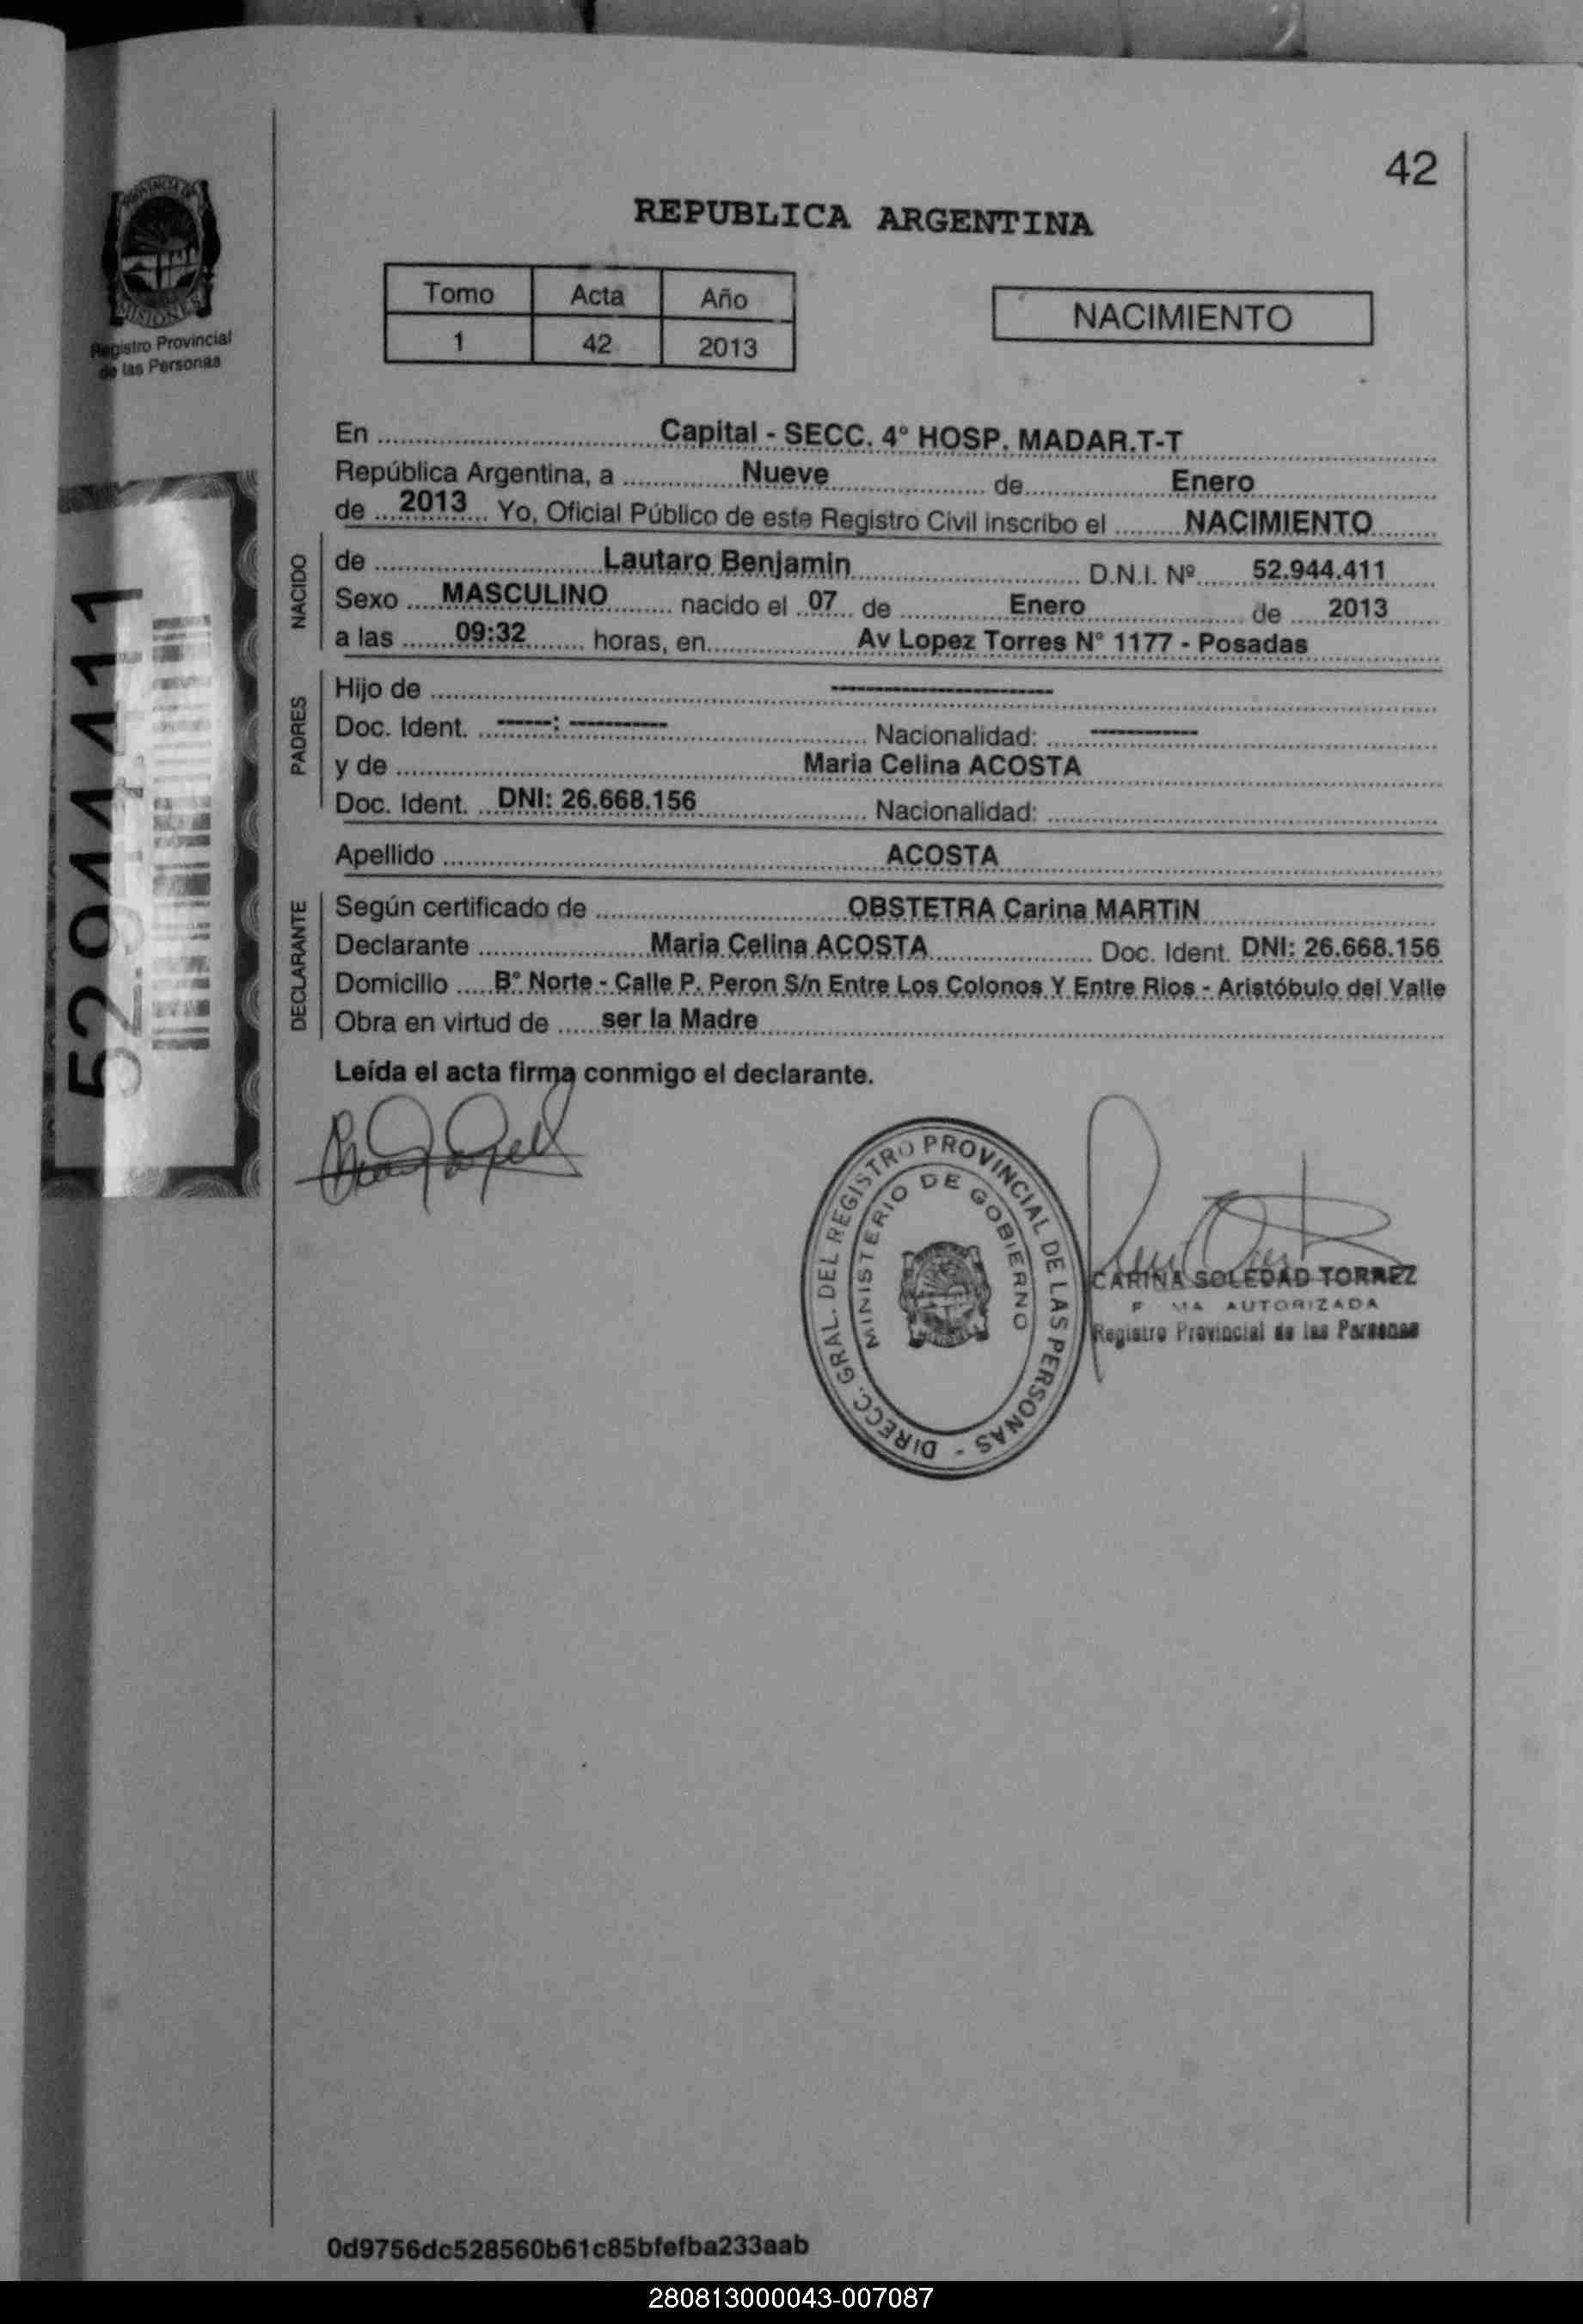 42
PROVINCIA DE
MISIONES
Registro Provincial
de las Personas
REPUBLICA ARGENTINA
Tomo Acta Año
1 42 2013
NACIMIENTO
En Capital - SECC. 4° HOSP. MADAR.T-T
República Argentina, a Nueve de Enero
de 2013 Yo, Oficial Público de este Registro Civil inscribo el NACIMIENTO
NACIDO
de Lautaro Benjamin D.N.I. Nº 52.944.411
Sexo MASCULINO nacido el 07 de Enero de 2013
a las 09:32 horas, en Av Lopez Torres N° 1177 - Posadas
PADRES
Hijo de --------------------
Doc. Ident. -----: --------- Nacionalidad: ----------
y de Maria Celina ACOSTA
Doc. Ident. DNI: 26.668.156 Nacionalidad:
Apellido ACOSTA
DECLARANTE
Según certificado de OBSTETRA Carina MARTiN
Declarante Maria Celina ACOSTA Doc. Ident. DNI: 26.668.156
Domicilio B° Norte - Calle P. Peron S/n Entre Los Colonos Y Entre Rios - Aristóbulo del Valle
Obra en virtud de ser la Madre
Leída el acta firma conmigo el declarante.
52.944.411
DIRECC. GRAL. DEL REGISTRO PROVINCIAL DE LAS PERSONAS -
MINISTERIO DE GOBIERNO
CARINA SOLEDAD TORREZ
AUTORIZADA
Registro Provincial de las Personas
0d9756dc528560b61c85bfefba233aab
280813000043-007087